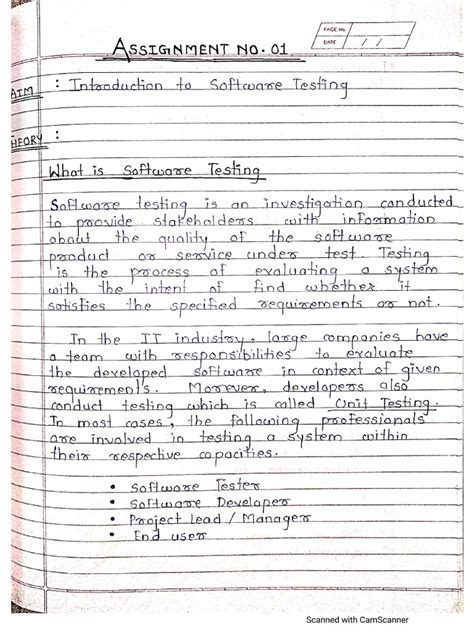 PAGE No.
DATE / /
ASSIGNMENT NO. 01
AIM : Introduction to Software Testing
THEORY :
What is Software Testing
Software testing is an investigation conducted
to provide stakeholders with information
about the quality of the software
product or service under test. Testing
is the process of evaluating a system
with the intent of find whether it
satisfies the specified requirements or not.
In the IT industry, large companies have
a team with responsibilities to evaluate
the developed software in context of given
requirements. Morever, developers also
conduct testing which is called Unit Testing.
In most cases, the following professionals
are involved in testing a system within
their respective capacities.
• Software Tester
• Software Developer
• Project Lead / Manager
• End user
Scanned with CamScanner